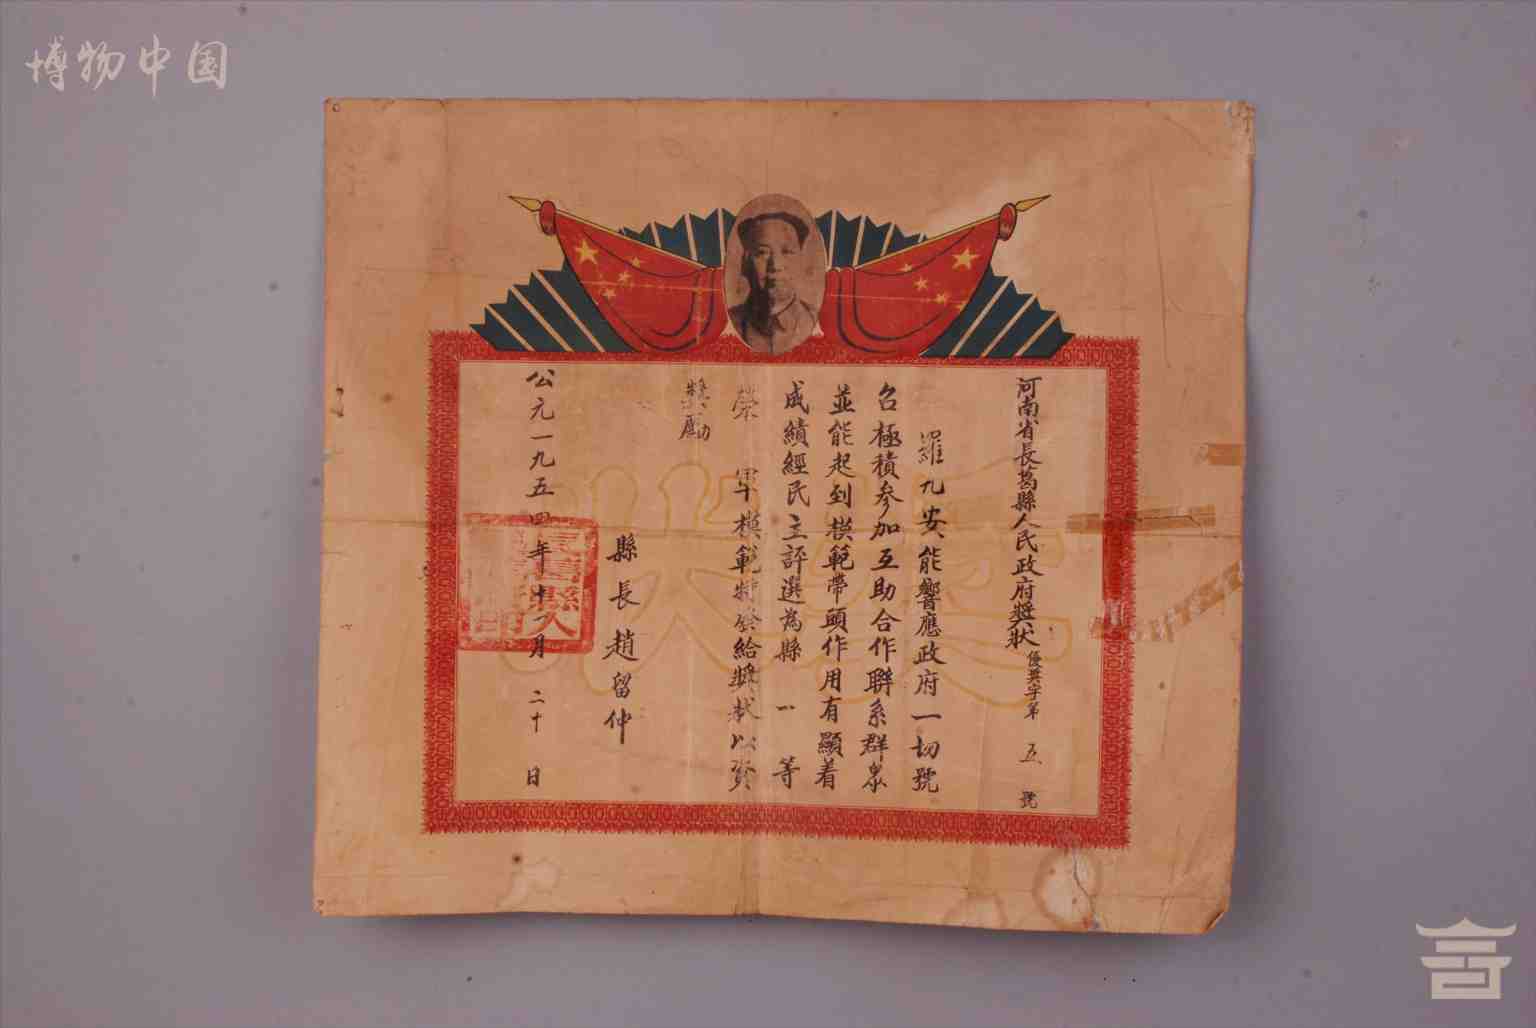 博物中国
河南省長葛縣人民政府獎狀優奬字第 五 號
羅九安能響應政府一切號
召極積参加互助合作聯系群衆
並能起到模範帶頭作用有顯着
成績經民主評選為縣 一 等
榮 軍模範特發給獎狀以資
獎勵
縣長趙留仲
公元一九五四年十一月二十日
獎狀